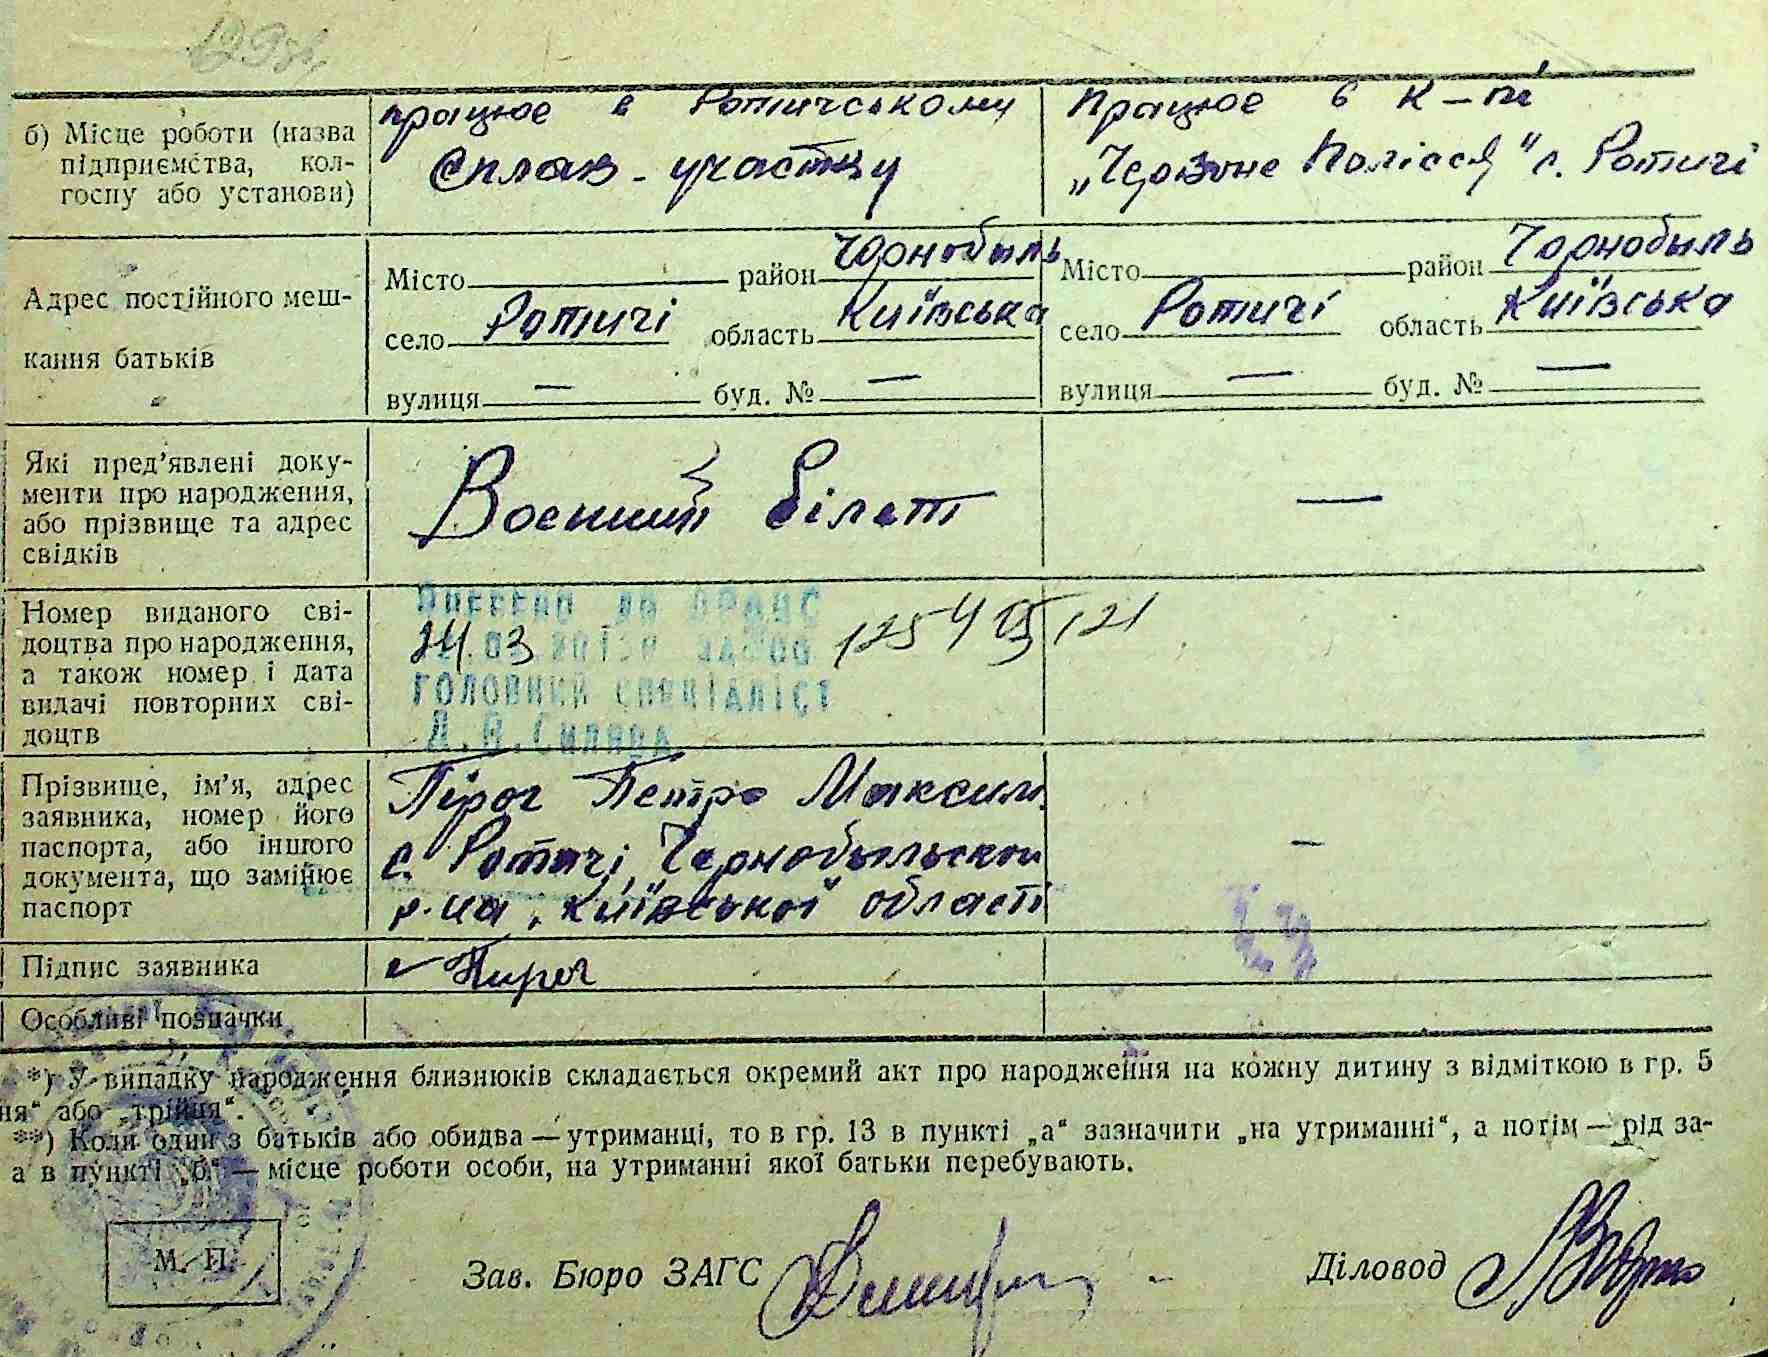 б) Місце роботи (назва підприємства, колгоспу або установи)
працює в Ротичському
Сплав-участку
Працює в к-пі
„Червоне Полісся" с. Ротичі
Адрес постійного мешкання батьків
Місто — район Чорнобыль
село Ротичі область Київська
вулиця — буд. № —
Місто — район Чорнобыль
село Ротичі область Київська
вулиця — буд. № —
Які пред'явлені документи про народження, або прізвище та адрес свідків
Воєнний білет
—
Номер виданого свідоцтва про народження, а також номер і дата видачі повторних свідоцтв
ГОЛОВНИЙ СПЕЦІАЛІСТ
Прізвище, ім'я, адрес заявника, номер його паспорта, або іншого документа, що замінює паспорт
Пірог Петро Максим.
с. Ротичі, Чернобыльской
р-на, Київської області
—
Підпис заявника
Пирог
Особливі позначки
*) У випадку народження близнюків складається окремий акт про народження на кожну дитину з відміткою в гр. 5
ня" або „трійня".
**) Коли один з батьків або обидва — утриманці, то в гр. 13 в пункті „а" зазначити „на утриманні", а потім — рід за-
а в пункті „б" — місце роботи особи, на утриманні якої батьки перебувають.
М. П.
Зав. Бюро ЗАГС
Діловод